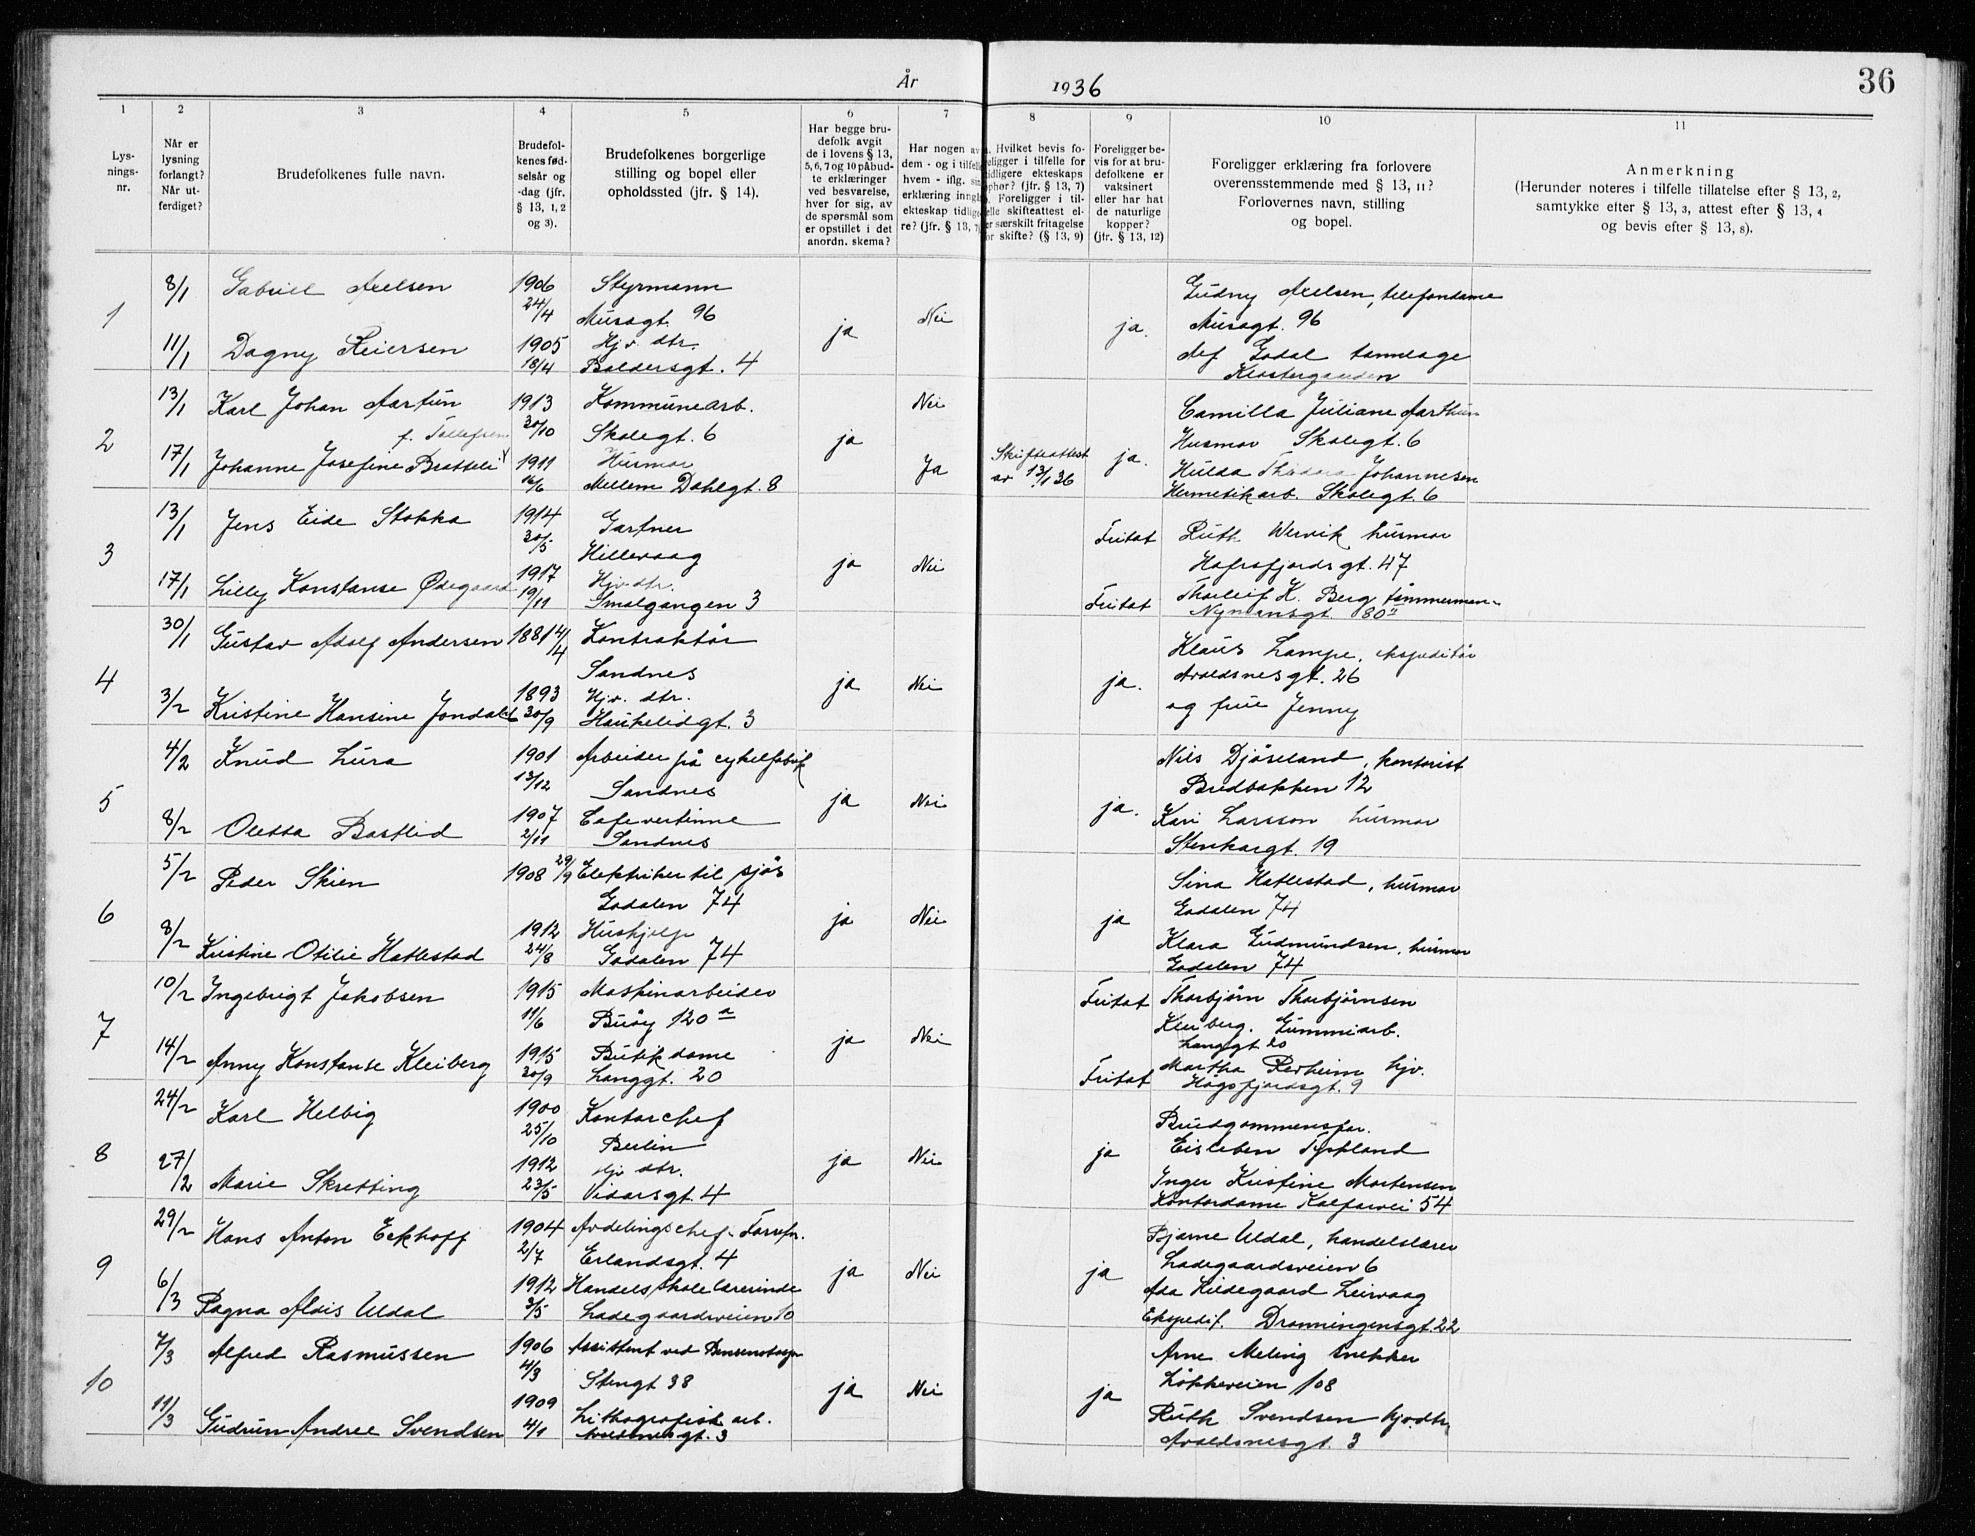 År 1936
36
1 2 3 4 5 6 7 8 9 10 11
Lysningsnr.
Når er lysning forlangt? Når utferdiget?
Brudefolkenes fulle navn.
Brudefolkenes fødselsår og -dag (jfr. § 13, 1, 2 og 3).
Brudefolkenes borgerlige stilling og bopel eller opholdssted (jfr. § 14).
Har begge brudefolk avgit de i lovens § 13, 5, 6, 7 og 10 påbudte erklæringer ved besvarelse, hver for sig, av de spørsmål som er opstillet i det anordn. skema?
Har nogen av dem - og i tilfelle hvem - iflg. sin erklæring inngått ekteskap tidligere? (jfr. § 13, 7)
Hvilket bevis foreligger i tilfelle for tidligere ekteskaps ophør? (jfr. § 13, 7) Foreligger i tilfelle skifteattest eller særskilt fritagelse for skifte? (§ 13, 9)
Foreligger bevis for at brudefolkene er vaksinert eller har hat de naturlige kopper? (jfr. § 13, 12)
Foreligger erklæring fra forlovere overensstemmende med § 13, 11? Forlovernes navn, stilling og bopel.
Anmerkning
(Herunder noteres i tilfelle tillatelse efter § 13, 2, samtykke efter § 13, 3, attest efter § 13, 4 og bevis efter § 13, 8).
1
8/1 Gabriel Axelsen 1906 24/4 Styrmann
Musegt. 96
11/1 Dagny Reiersen 1905 18/4 Hjv. dtr.
Baldersgt. 4
ja Nei ja.
Gudny Axelsen, telefondame
Musegt. 96
Godal tannlæge
Klostergaarden
2
13/1 Karl Johan Aartun 1913 20/10 Kommunearb.
Skolegt. 6
f. Tollefsen
17/1 Johanne Josefine Bratteli 1911 16/6 Husmor
Mellem Dahlgt. 8
ja Nei Ja
Skifteattest
av 13/1 36
ja.
Camilla Juliane Aarthun
Husmor Skolegt. 6
Hulda Johannesen
Hermetikarb. Skolegt. 6
3
13/1 Jens Eide Stokka 1914 30/5 Gartner
Hillevaag
17/1 Lilly Konstanse Ødegaard 1917 19/11 Hjv. dtr.
Smalgangen 3
ja Nei Fritat Fritat
Ruth Wervik husmor
Hafrsfjordsgt. 47
Thorleif K. Berg tømmerman
Nymansgt. 80
4
30/1 Gustav Adolf Andersen 1881 4/4 Kontraktør
Sandnes
3/2 Kristine Hansine Jondahl 1893 30/9 Hjv. dtr.
Haukelidgt. 3
ja Nei ja.
Klaus Lampe, ekspeditør
Avaldsnesgt. 26
og frue Jenny
5
4/2 Knud Lura 1901 13/12 Arbeider på cykelfabrik
Sandnes
8/2 Oletta Bastlid 1907 2/11 Cafevertinne
Sandnes
ja Nei ja.
Nils Djøseland, kontorist
Bredbakken 12
Kari Larsson husmor
Stenkargt. 19
6
5/2 Peder Skien 1908 29/9 Elektriker til sjøs
Godalen 74
8/2 Kristine Otilie Hatlestad 1912 24/8 Hushjelp
Godalen 74
ja Nei ja
Sina Hatlestad, husmor
Godalen 74
Klara Gudmundsen, husmor
Godalen 74
7
10/2 Ingebrigt Jakobsen 1915 11/6 Maskinarbeider
Buøy 120 a
14/2 Anny Konstanse Kleiberg 1915 20/9 Butikdame
Langgt. 20
ja Nei Fritat Fritat
Thorbjørn Thorbjørnsen
Kleiberg. Gummiarb.
Langgt 20
Martha Rerheim hjv.
Høgsfjordsgt. 9
8
24/2 Karl Helbig 1900 25/10 Kontorchef
Berlin
27/2 Marie Skretting 1912 23/5 Hjv dtr.
Vidarsgt. 4
ja Nei ja
Brudgommensfar.
Eisleben Tyskland
Inger Kristine Mortensen
Kontordame Kalfarvei 54
9
29/2 Hans Anton Eckhoff 1904 2/7 Avdelingschef
Erlandsgt. 4
6/3 Ragna Alvis Uldal 1912 3/5 Handelsskolelærerinde
Ladegaardsveien 10
ja Nei ja
Bjarne Uldal, handelslærer
Ladegaardsveien 6
Ada Hildegaard Leirvaag
Ekspedit. Dronningensgt. 22
10
7/3 Alfred Rasmussen 1906 4/3 Assistent ved
Stengt 38
11/3 Gudrun Andree Svendsen 1909 4/1 Lithografisk arb.
Avaldsnesgt. 3
ja Nei ja
Arne Meling snekker
Løkkeveien 108
Ruth Svendsen hjvdtr.
Avaldsnesgt. 3